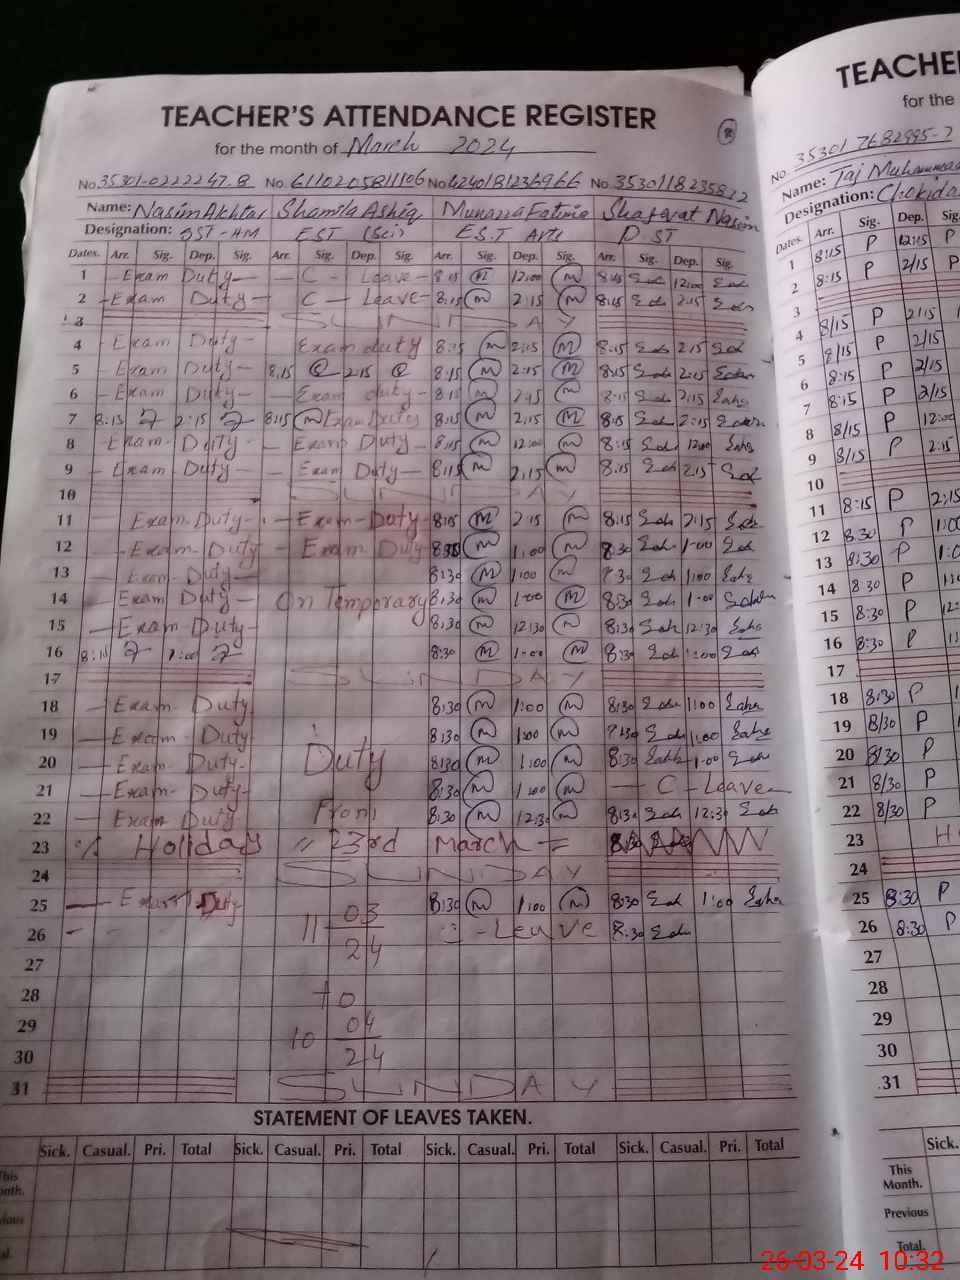 TEACHER'S ATTENDANCE REGISTER
for the month of March 2024
No. 35301-0222247.8 No. 6110205811106 No 4240181236966 No. 3530118235812
Name: Nasim Akhtar Shamila Ashiq Munazza Fatima Shafawat Nasim
Designation: SST-HM EST (Sci) E.S.T Arts P.ST
Dates. Arr. Sig. Dep. Sig. Arr. Sig. Dep. Sig. Arr. Sig. Dep. Sig. Arr. Sig. Dep. Sig.
1 Exam Duty C - Leave 8:15 M 12:00 M 8:15 12:00
2 Exam Duty C - Leave 8:15 M 2:15 M 8:15 2:15
3 SUNDAY
4 Exam Duty Exam duty 8:15 M 2:15 M 8:15 2:15
5 Exam Duty 8:15 2:15 8:15 M 2:15 M 8:15 2:15
6 Exam Duty Exam duty 8:15 M 2:15 M 8:15 2:15
7 8:15 2:15 8:15 Exam Duty 8:15 M 2:15 M 8:15 2:15
8 Exam Duty Exam Duty 8:15 M 12:00 M 8:15 12:00
9 Exam Duty Exam Duty 8:15 M 2:15 M 8:15 2:15
10 SUNDAY
11 Exam Duty Exam Duty 8:15 M 2:15 M 8:15 2:15
12 Exam Duty Exam Duty 8:30 M 1:00 M 8:30 1:00
13 Exam Duty 8:30 M 1:00 M 8:30 1:00
14 Exam Duty On Temporary 8:30 M 1:00 M 8:30 1:00
15 Exam Duty 8:30 M 12:30 M 8:30 12:30
16 8:15 1:00 8:30 M 1:00 M 8:30 1:00
17 SUNDAY
18 Exam Duty 8:30 M 1:00 M 8:30 1:00
19 Exam Duty 8:30 M 1:00 M 8:30 1:00
20 Exam Duty Duty 8:30 M 1:00 M 8:30 1:00
21 Exam Duty 8:30 M 1:00 M C - Leave
22 Exam Duty From 8:30 M 12:30 M 8:30 12:30
23 Holiday 23rd March
24 SUNDAY
25 Exam Duty 8:30 M 1:00 M 8:30 1:00
26 11 03/24 C-Leave 8:30
27
28 To
29 10 04/24
30
31 SUNDAY
STATEMENT OF LEAVES TAKEN.
Sick. Casual. Pri. Total Sick. Casual. Pri. Total Sick. Casual. Pri. Total Sick. Casual. Pri. Total
TEACHE
for the
No. 35301 7682995-7
Name: Taj Muhammad
Designation: Chokida
Dates. Arr. Sig. Dep. Sig.
1 8:15 P 12:15 P
2 8:15 P 2/15 P
3
4 8/15 P 2/15
5 8/15 P 2/15
6 8:15 P 2/15
7 8:15 P 2/15
8 8/15 P 12:00
9 8/15 P 2:15
10
11 8:15 P 2:15
12 8:30 P 1:00
13 8:30 P 1:0
14 8:30 P
15 8:30 P 12:
16 8:30 P
17
18 8:30 P
19 8/30 P
20 8/30 P
21 8/30 P
22 8/30 P
23 H
24
25 8:30 P
26 8:30 P
27
28
29
30
31
Sick.
This Month.
Previous
Total.
26-03-24 10:32